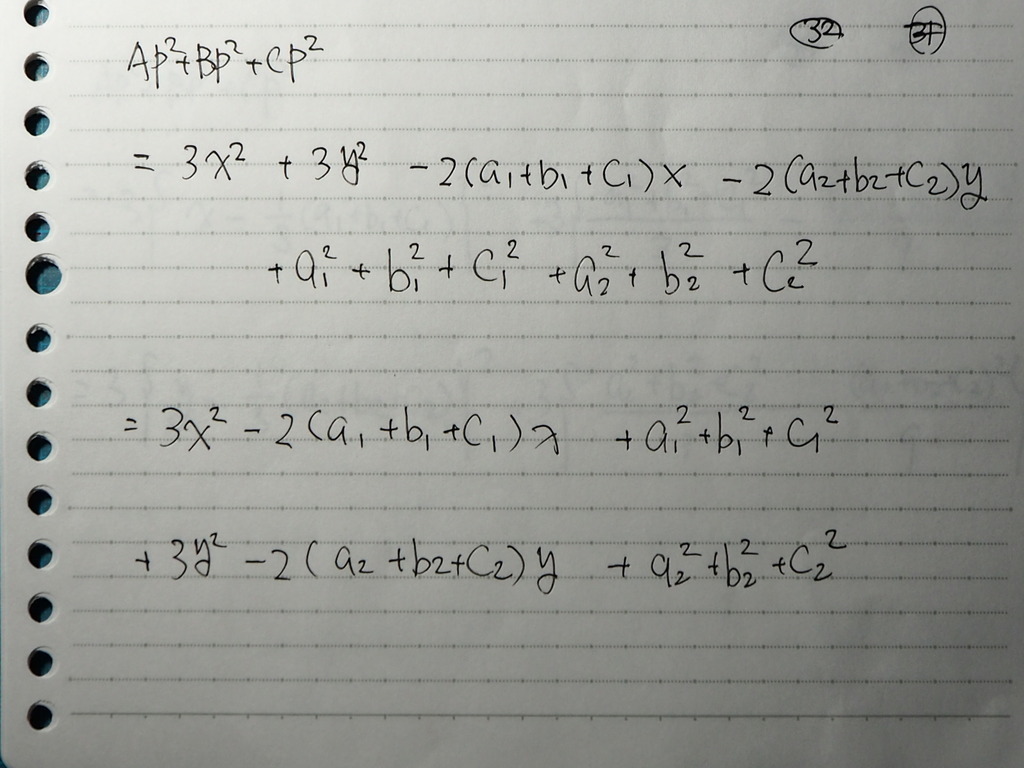 32 31
AP²+BP²+CP²
= 3x² + 3y² -2(a₁+b₁+c₁)x -2(a₂+b₂+c₂)y
+a₁²+b₁²+c₁²+a₂²+b₂²+c₂²
= 3x²-2(a₁+b₁+c₁)x +a₁²+b₁²+c₁²
+3y²-2(a₂+b₂+c₂)y +a₂²+b₂²+c₂²